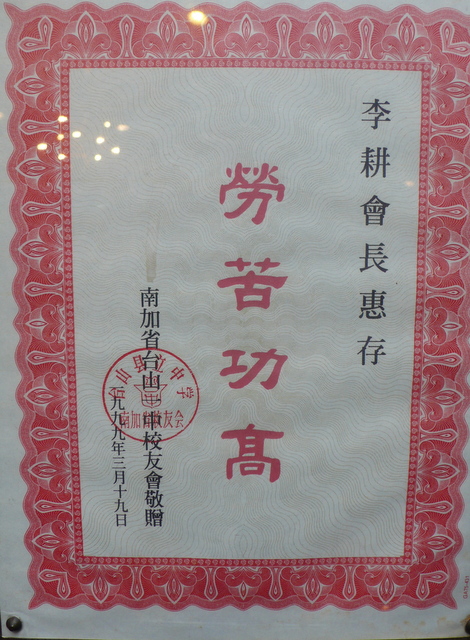 李耕會長惠存
勞苦功高
南加省台山一中校友會敬贈
一九九九年三月十九日
台山县一中学
南加省校友会